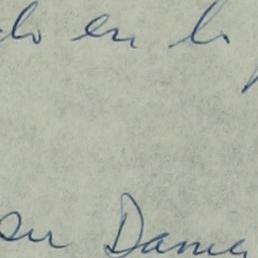 do en la
su Dama